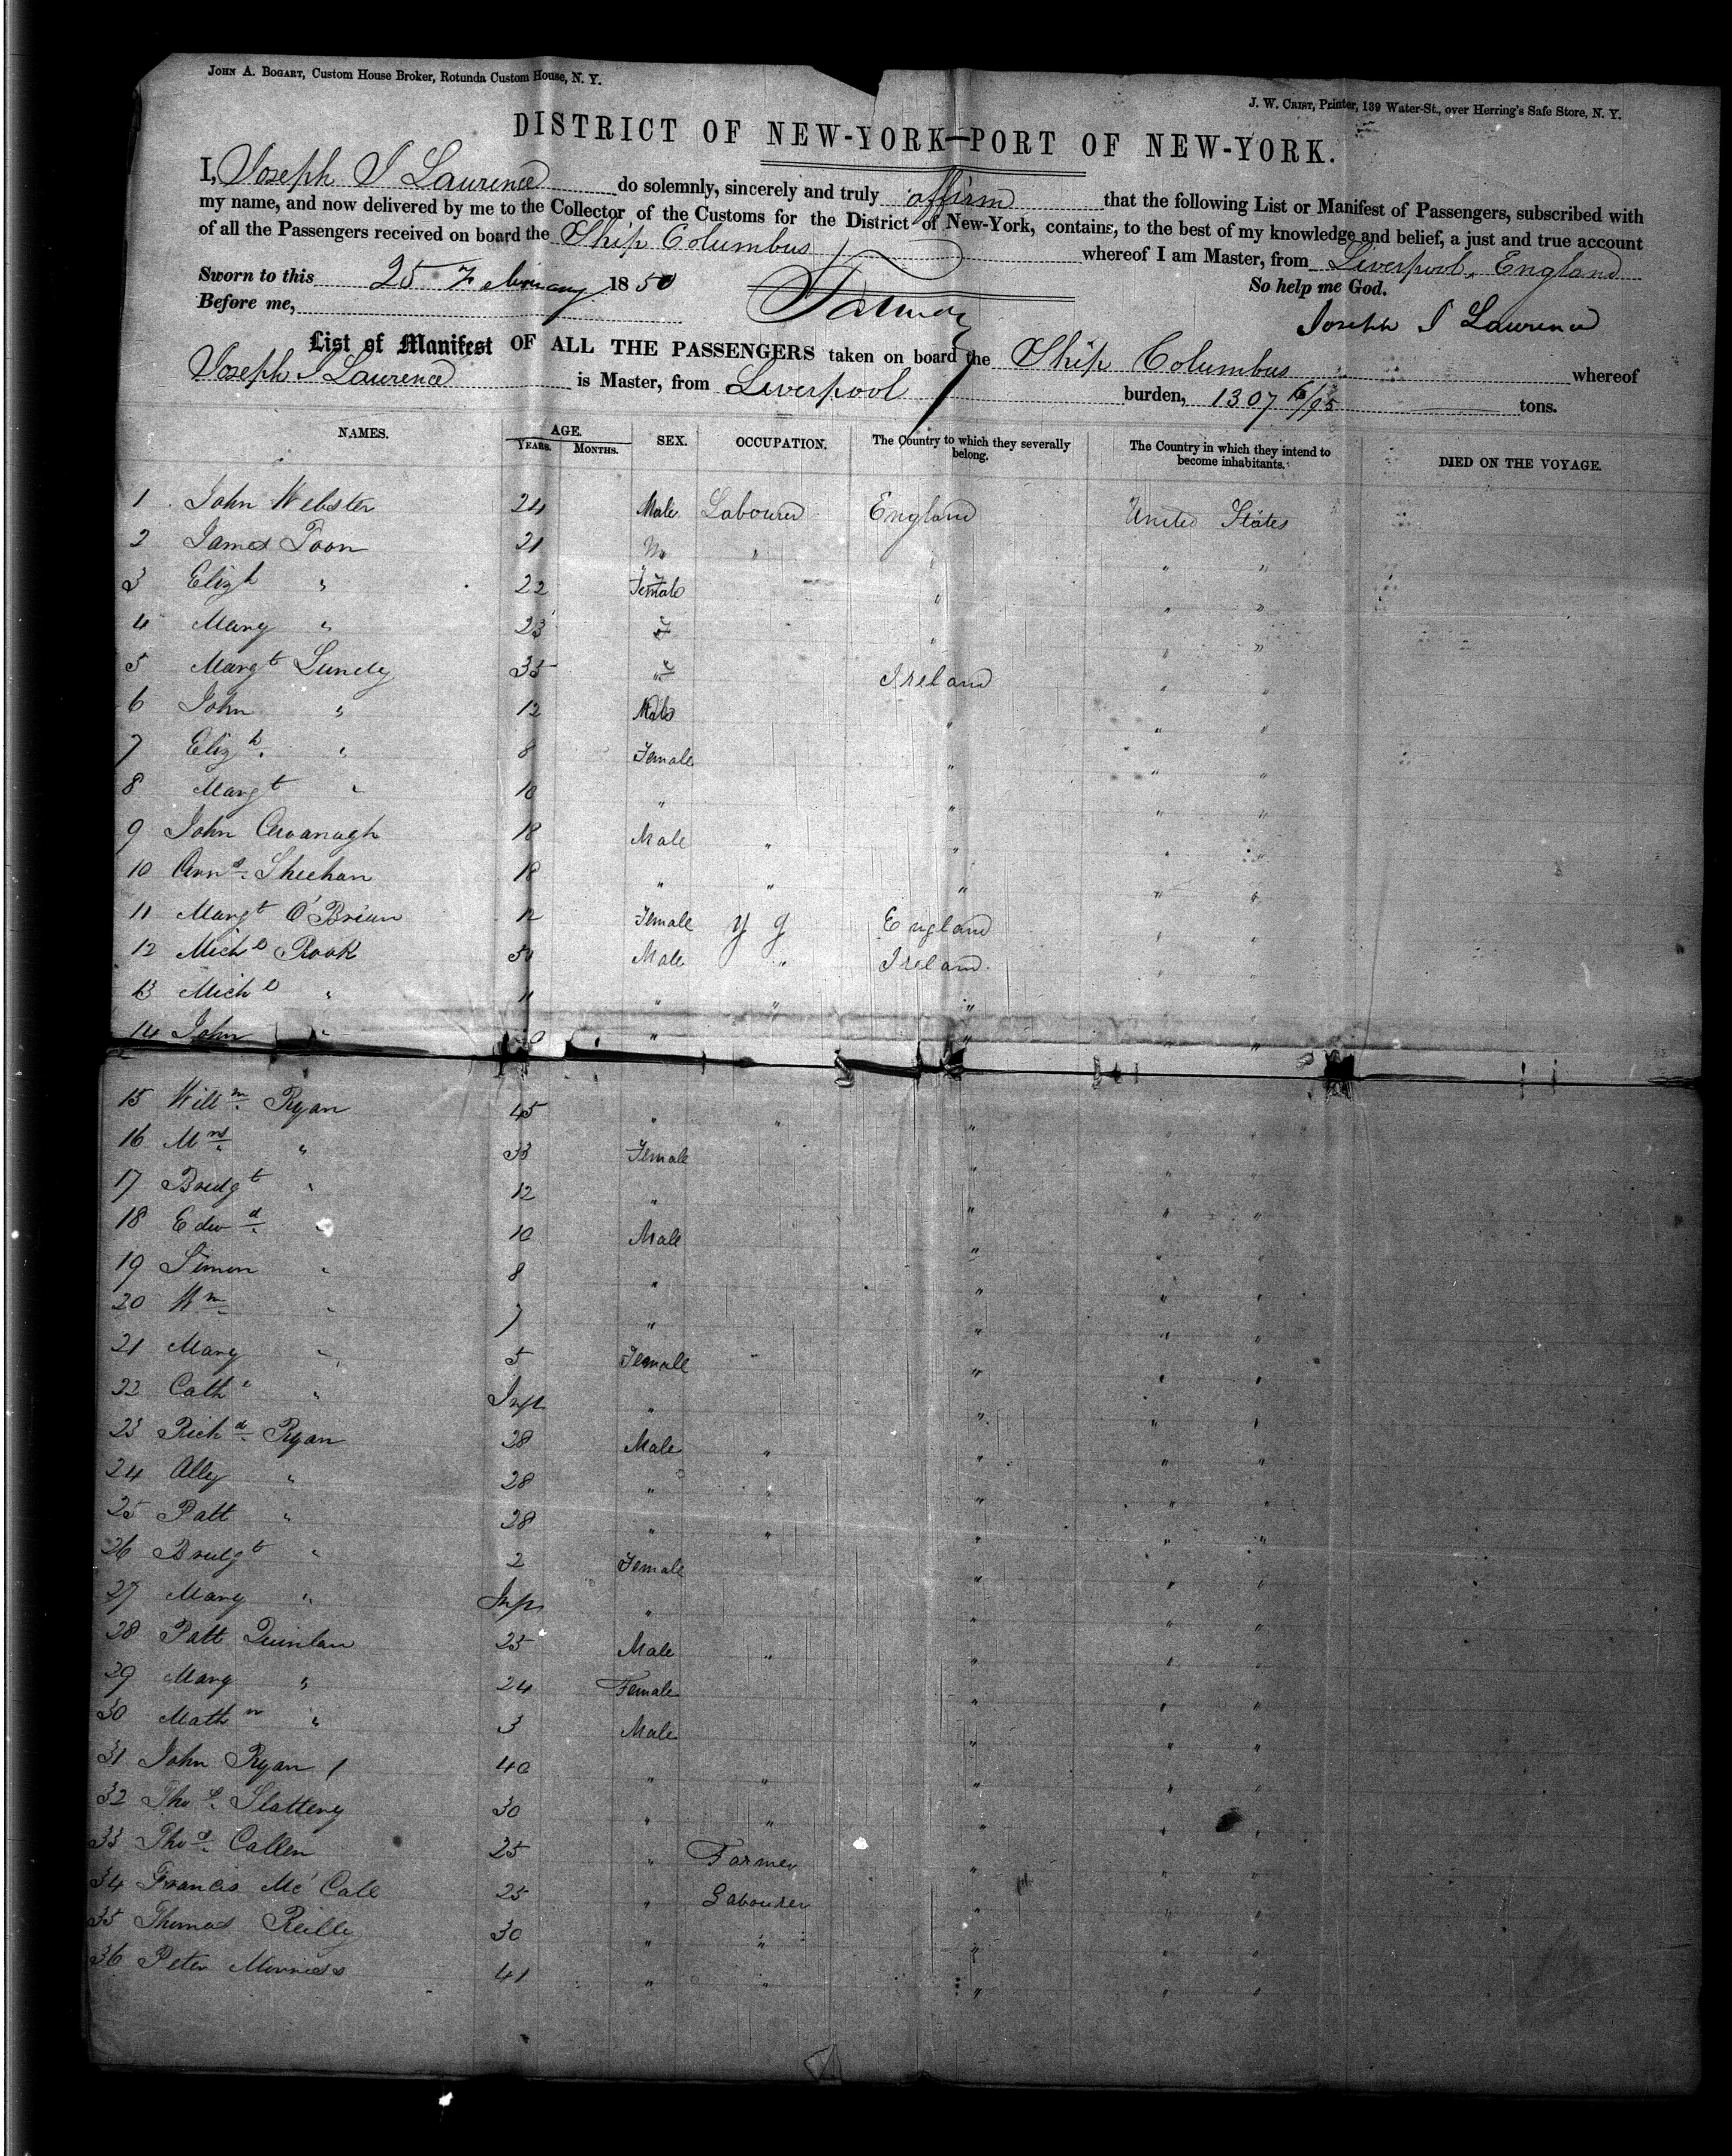 JOHN A. BOGART, Custom House Broker, Rotunda Custom House, N. Y.
J. W. CRIST, Printer, 139 Water-St., over Herring's Safe Store, N. Y.
DISTRICT OF NEW-YORK—PORT OF NEW-YORK.
I, Joseph J Laurence do solemnly, sincerely and truly affirm that the following List or Manifest of Passengers, subscribed with
my name, and now delivered by me to the Collector of the Customs for the District of New-York, contains, to the best of my knowledge and belief, a just and true account
of all the Passengers received on board the Ship Columbus whereof I am Master, from Liverpool, England
Sworn to this 25 February 1850 So help me God.
Before me, Joseph J Laurence
List of Manifest OF ALL THE PASSENGERS taken on board the Ship Columbus whereof
Joseph J Laurence is Master, from Liverpool burden, 1307 6/95 tons.
NAMES. AGE. YEARS. MONTHS. SEX. OCCUPATION. The Country to which they severally belong. The Country in which they intend to become inhabitants. DIED ON THE VOYAGE.
1 John Webster 24 Male Labourer England United States
2 James Toon 21 M " " " "
3 Elizh " 22 Female " " "
4 Mary " 23 F " " "
5 Margt Lundy 35 F Ireland " "
6 John " 12 Male " " "
7 Elizh " 8 Female " " "
8 Margt " 10 " " " "
9 John Cavanagh 18 Male " " " "
10 Sheehan 18 " " " " "
11 Margt O'Brian 12 Female England " "
12 Michl Rook 50 Male " Ireland " "
13 Michl " 11 " " " " "
14 John " " " " "
15 Willm Ryan 45 " " " " "
16 Mrs " 33 Female " " "
17 Bridgt " 12 " " " "
18 Edwd " 10 Male " " "
19 Simon " 8 " " " "
20 Wm " 7 " " " "
21 Mary " 5 Female " " "
22 Cathe " Inft " " " "
23 Richd Ryan 28 Male " " " "
24 Ally " 28 " " " " "
25 Patt " 28 " " " " "
26 Bridgt " 2 Female " " "
27 Mary " Inft " " " "
28 Patt Quinlan 25 Male " " " "
29 Mary " 24 Female " " "
30 Mathw " 3 Male " " "
31 John Ryan 1 40 " " " " "
32 Thos Slattery 30 " " " " "
33 Thos Callen 25 " Farmer " " "
34 Francis Mc'Cale 25 " Labourer " " "
35 Thomas Reilly 30 " " " " "
36 Peter Morriss 41 " " " " "